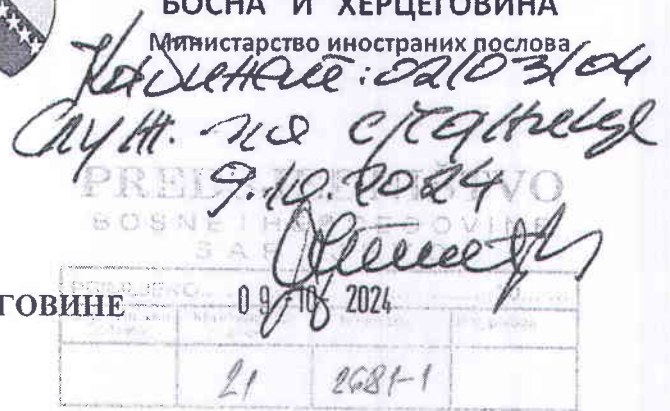 БОСНА И ХЕРЦЕГОВИНА
Министарство иностраних послова
Кабинети: 02/03/04
Служ. за сједнице
9.10.2024
PREDSJEDNIŠTVO
BOSNE I HERCEGOVINE
SA
ГОВИНЕ
PRIMLJENO
09 -10- 2024
21
2681-1